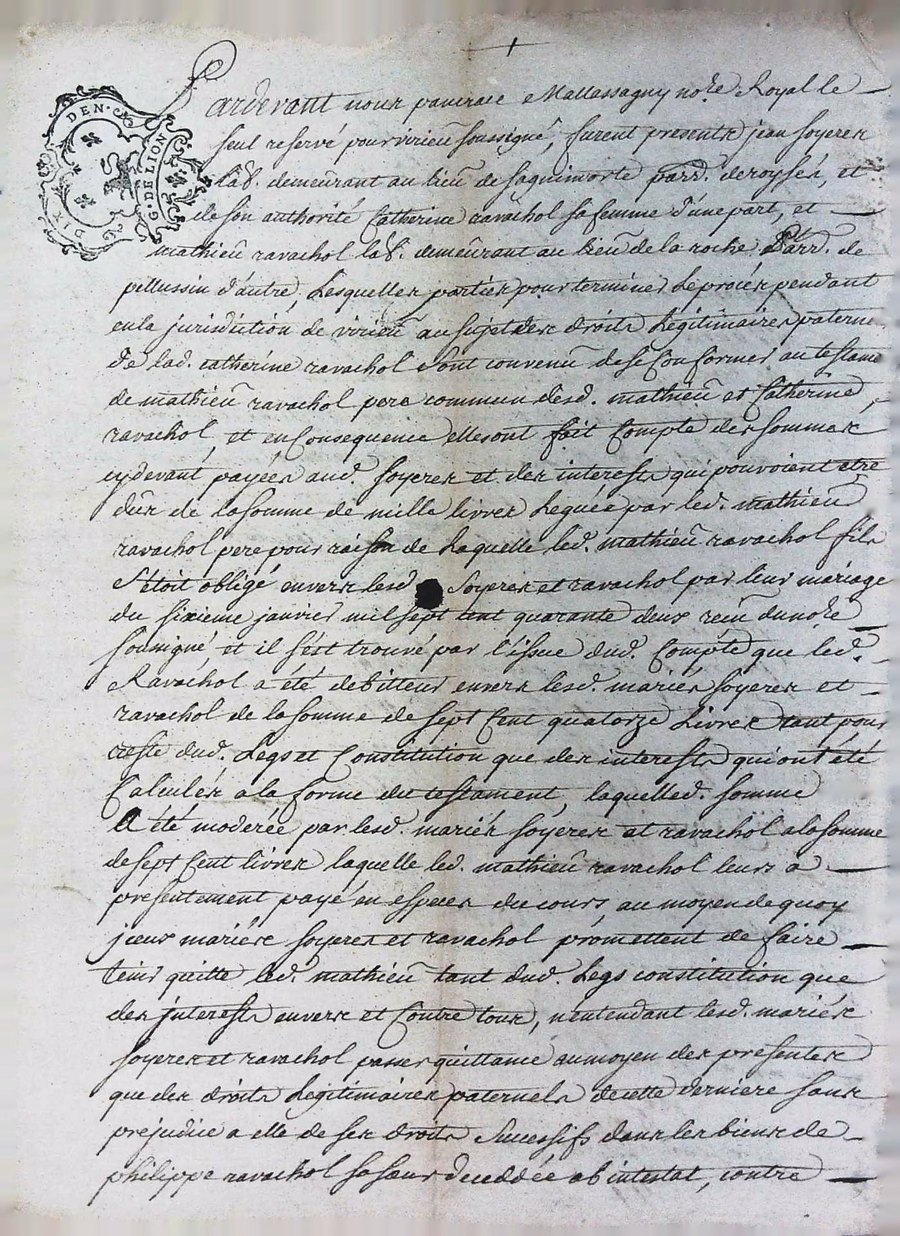 DIX DEN. G. DE LION
Pardevant nous pancrace Mallassagny no.re Royal le
seul reservé pour virieu soussigné, furent presents jean soyeres
lab.r demeurant au lieu de saquimorte parr. de royses, et
de son authorité Catherine ravachol sa femme d'une part, et
mathieu ravachol lab.r demeurant au lieu de la roche Parr. de
pellussin d'autre, Lesquelles parties pour terminer le procés pendant
en la jurisdiction de virieu au sujet des droits Légitimaires paterne
de lad. catherine ravachol sont convenu de se Conformer au testame
de mathieu ravachol pere commun desd. mathieu et Catherine
ravachol, et en Consequence elles ont fait Compte des sommes
cy devant payées aud. soyeres et des interests qui pouvoient etre
dus de la somme de mille livres Leguée par led. mathieu
ravachol pere pour raison de Laquelle led. mathieu ravachol fils
s'étoit obligé envers lesd. soyeres et ravachol par leur mariage
du sixieme janvier mil sept cent quarante deux reçu du no.re
sousigné et il s'est trouvé par l'issue dud. Compte que led.
Ravachol a été debitteur envers lesd. mariés soyeres et
ravachol de la somme de sept Cent quatorze Livres tant pour
reste dud. Legs et Constitution que des interests qui ont été
Calculés a la forme du testament, laquelled. somme
A été moderée par lesd. mariés soyeres et ravachol a la somme
de sept Cent livres laquelle led. mathieu ravachol leurs a
presentement payé en especes du cours, au moyen de quoy
iceux mariés soyeres et ravachol promettent de faire
tenir quitte led. mathieu tant dud. Legs constitution que
des jnterests envers et Contre tous, n'entendant lesd. mariés
soyeres et ravachol passer quittance au moyen des presentes
que des droits Légitimaires paternels de cette derniere sans
préjudice a elle de ses droits Successifs dans les biens de
philippe ravachol sa sœur deceddée ab intestat, contre